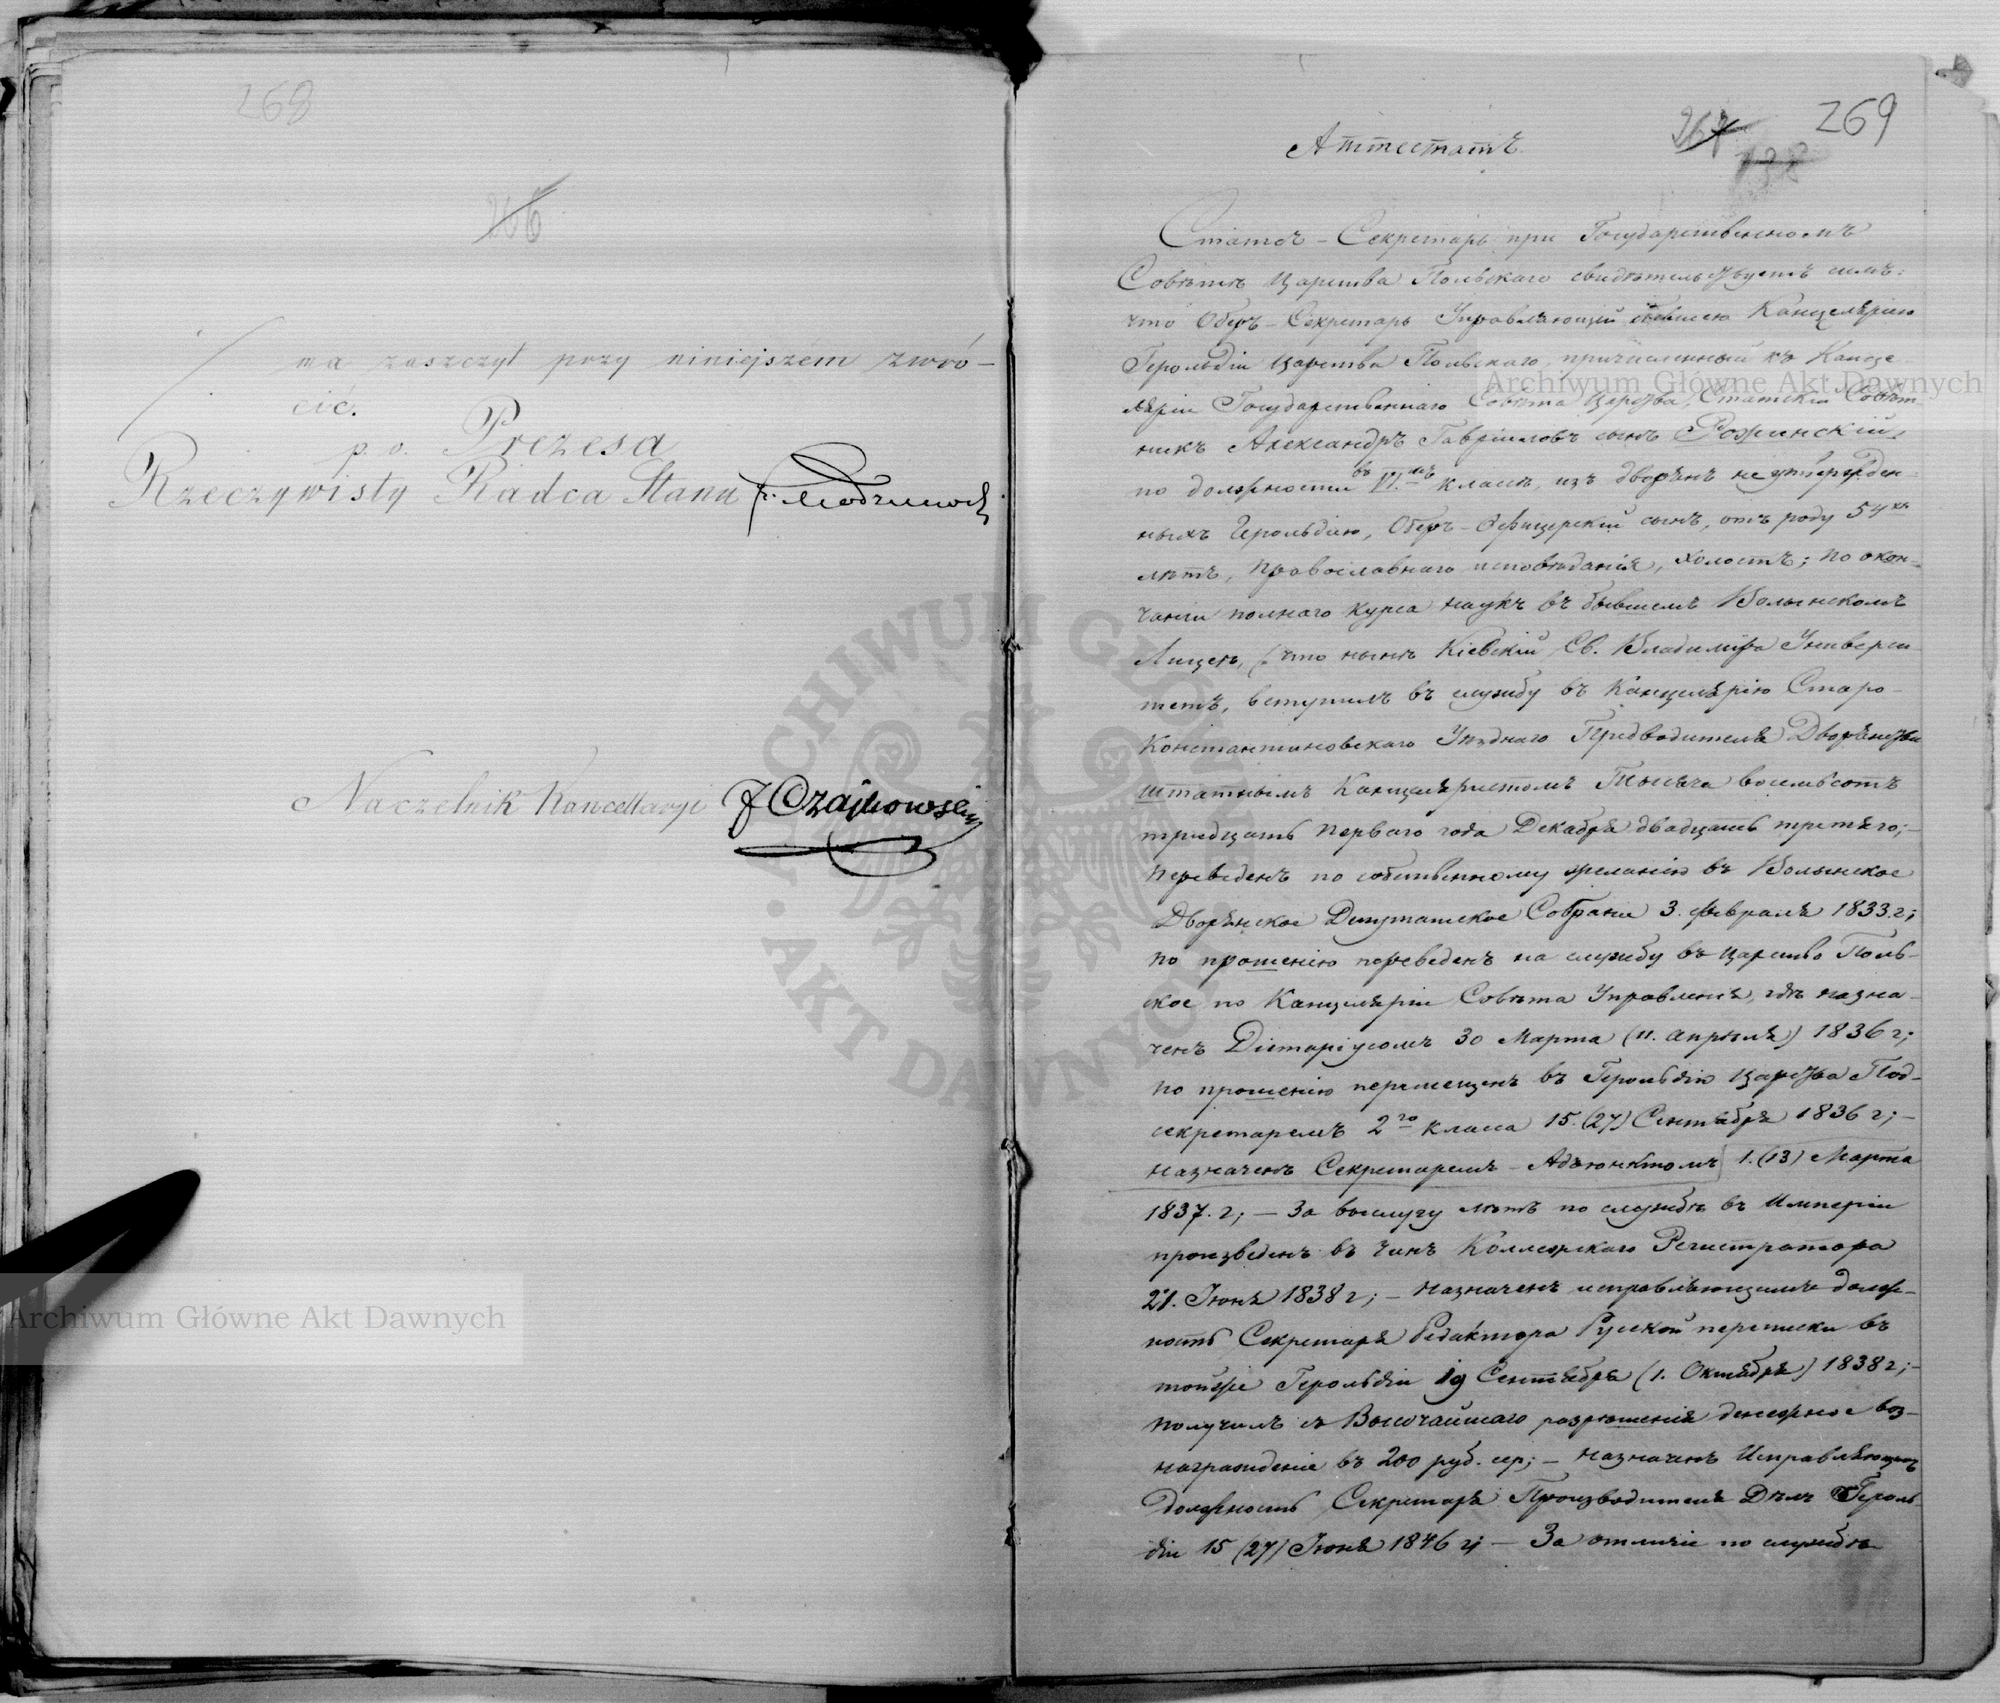 268
266
ma zaszczyt przy niniejszém zwró-
cić.
p. o. Prezesa
Rzeczywisty Radca Stanu
Naczelnik Kancellaryi J Czajkowski
269
267
138
Аттестатъ
Статсъ-Секретарь при Государственномъ
Совѣтѣ Царства Польскаго свидѣтельствуетъ симъ:
что Оберъ-Секретарь Управляющій бывшею Канцеляріею
Герольдіи Царства Польскаго, причисленный къ Канце
ляріи Государственнаго Совѣта Царства, Статскій Совѣт
никъ Александръ Гавріиловъ сынъ Рожинскій,
по должности въ VI.мъ классѣ, изъ дворянъ не утвержден
ныхъ Герольдіею, Оберъ-Офицерскій сынъ, отъ роду 54хъ
лѣтъ, Православнаго исповѣданія, холостъ; по окон-
чаніи полнаго курса наукъ въ бывшемъ Волынскомъ
Лицеѣ, (что нынѣ Кіевскій Св. Владиміра Универси
тетъ, вступилъ въ службу въ Канцелярію Старо-
Константиновскаго Уѣзднаго Предводителя Дворянства
штатнымъ Канцеляристомъ Тысяча восемьсотъ
тридцать перваго года Декабря двадцать третьяго;-
переведенъ по собственному желанію въ Волынское
Дворянское Депутатское Собраніе 3. февраля 1833.г;
по прошенію переведенъ на службу въ Царство Поль-
ское по Канцеляріи Совѣта Управленія, гдѣ назна-
ченъ Діетаріусомъ 30 Марта (11. Апрѣля) 1836 г;
по прошенію перемещенъ въ Герольдію Царства Под-
секретаремъ 2го класса 15.(27) Сентября 1836 г;-
назначенъ Секретаремъ-Адъюнктомъ 1.(13) Марта
1837.г; - За выслугу лѣтъ по службѣ въ Имперіи
произведенъ въ Чинъ Коллежскаго Регистратора
21. Іюня 1838 г; - назначенъ исправляющимъ долж-
ность Секретаря Редактора Русской переписки въ
тойже Герольдіи 19 Сентября (1. Октября) 1838 г;-
получилъ съ Высочайшаго разрѣшенія денежное воз-
награжденіе въ 200 руб. сер; - назначенъ Исправляющимъ
Должность Секретаря Производителя Дѣлъ Героль-
діи 15 (27) Іюня 1846 г; - За отличіе по службѣ
Archiwum Główne Akt Dawnych
Archiwum Główne Akt Dawnych
ARCHIWUM GŁÓWNE AKT DAWNYCH